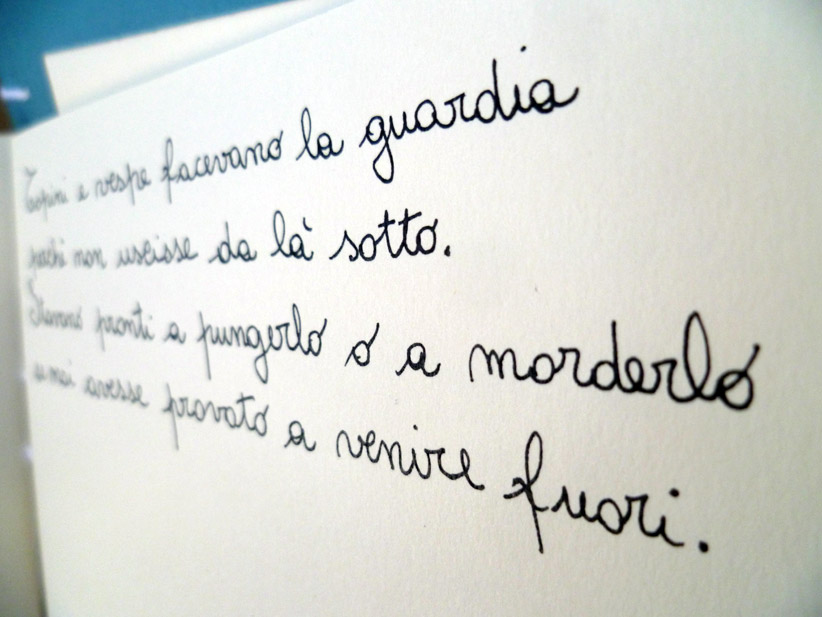 Topini e vespe facevano la guardia
perché non uscisse da là sotto.
pronti a pungerlo o a morderlo
se mai avesse provato a venire fuori.